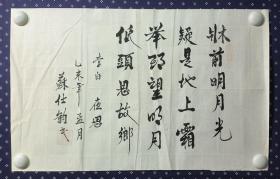 牀前明月光
疑是地上霜
举頭望明月
低頭思故鄉
李白 夜思
乙未年孟月
蘇仕鈞